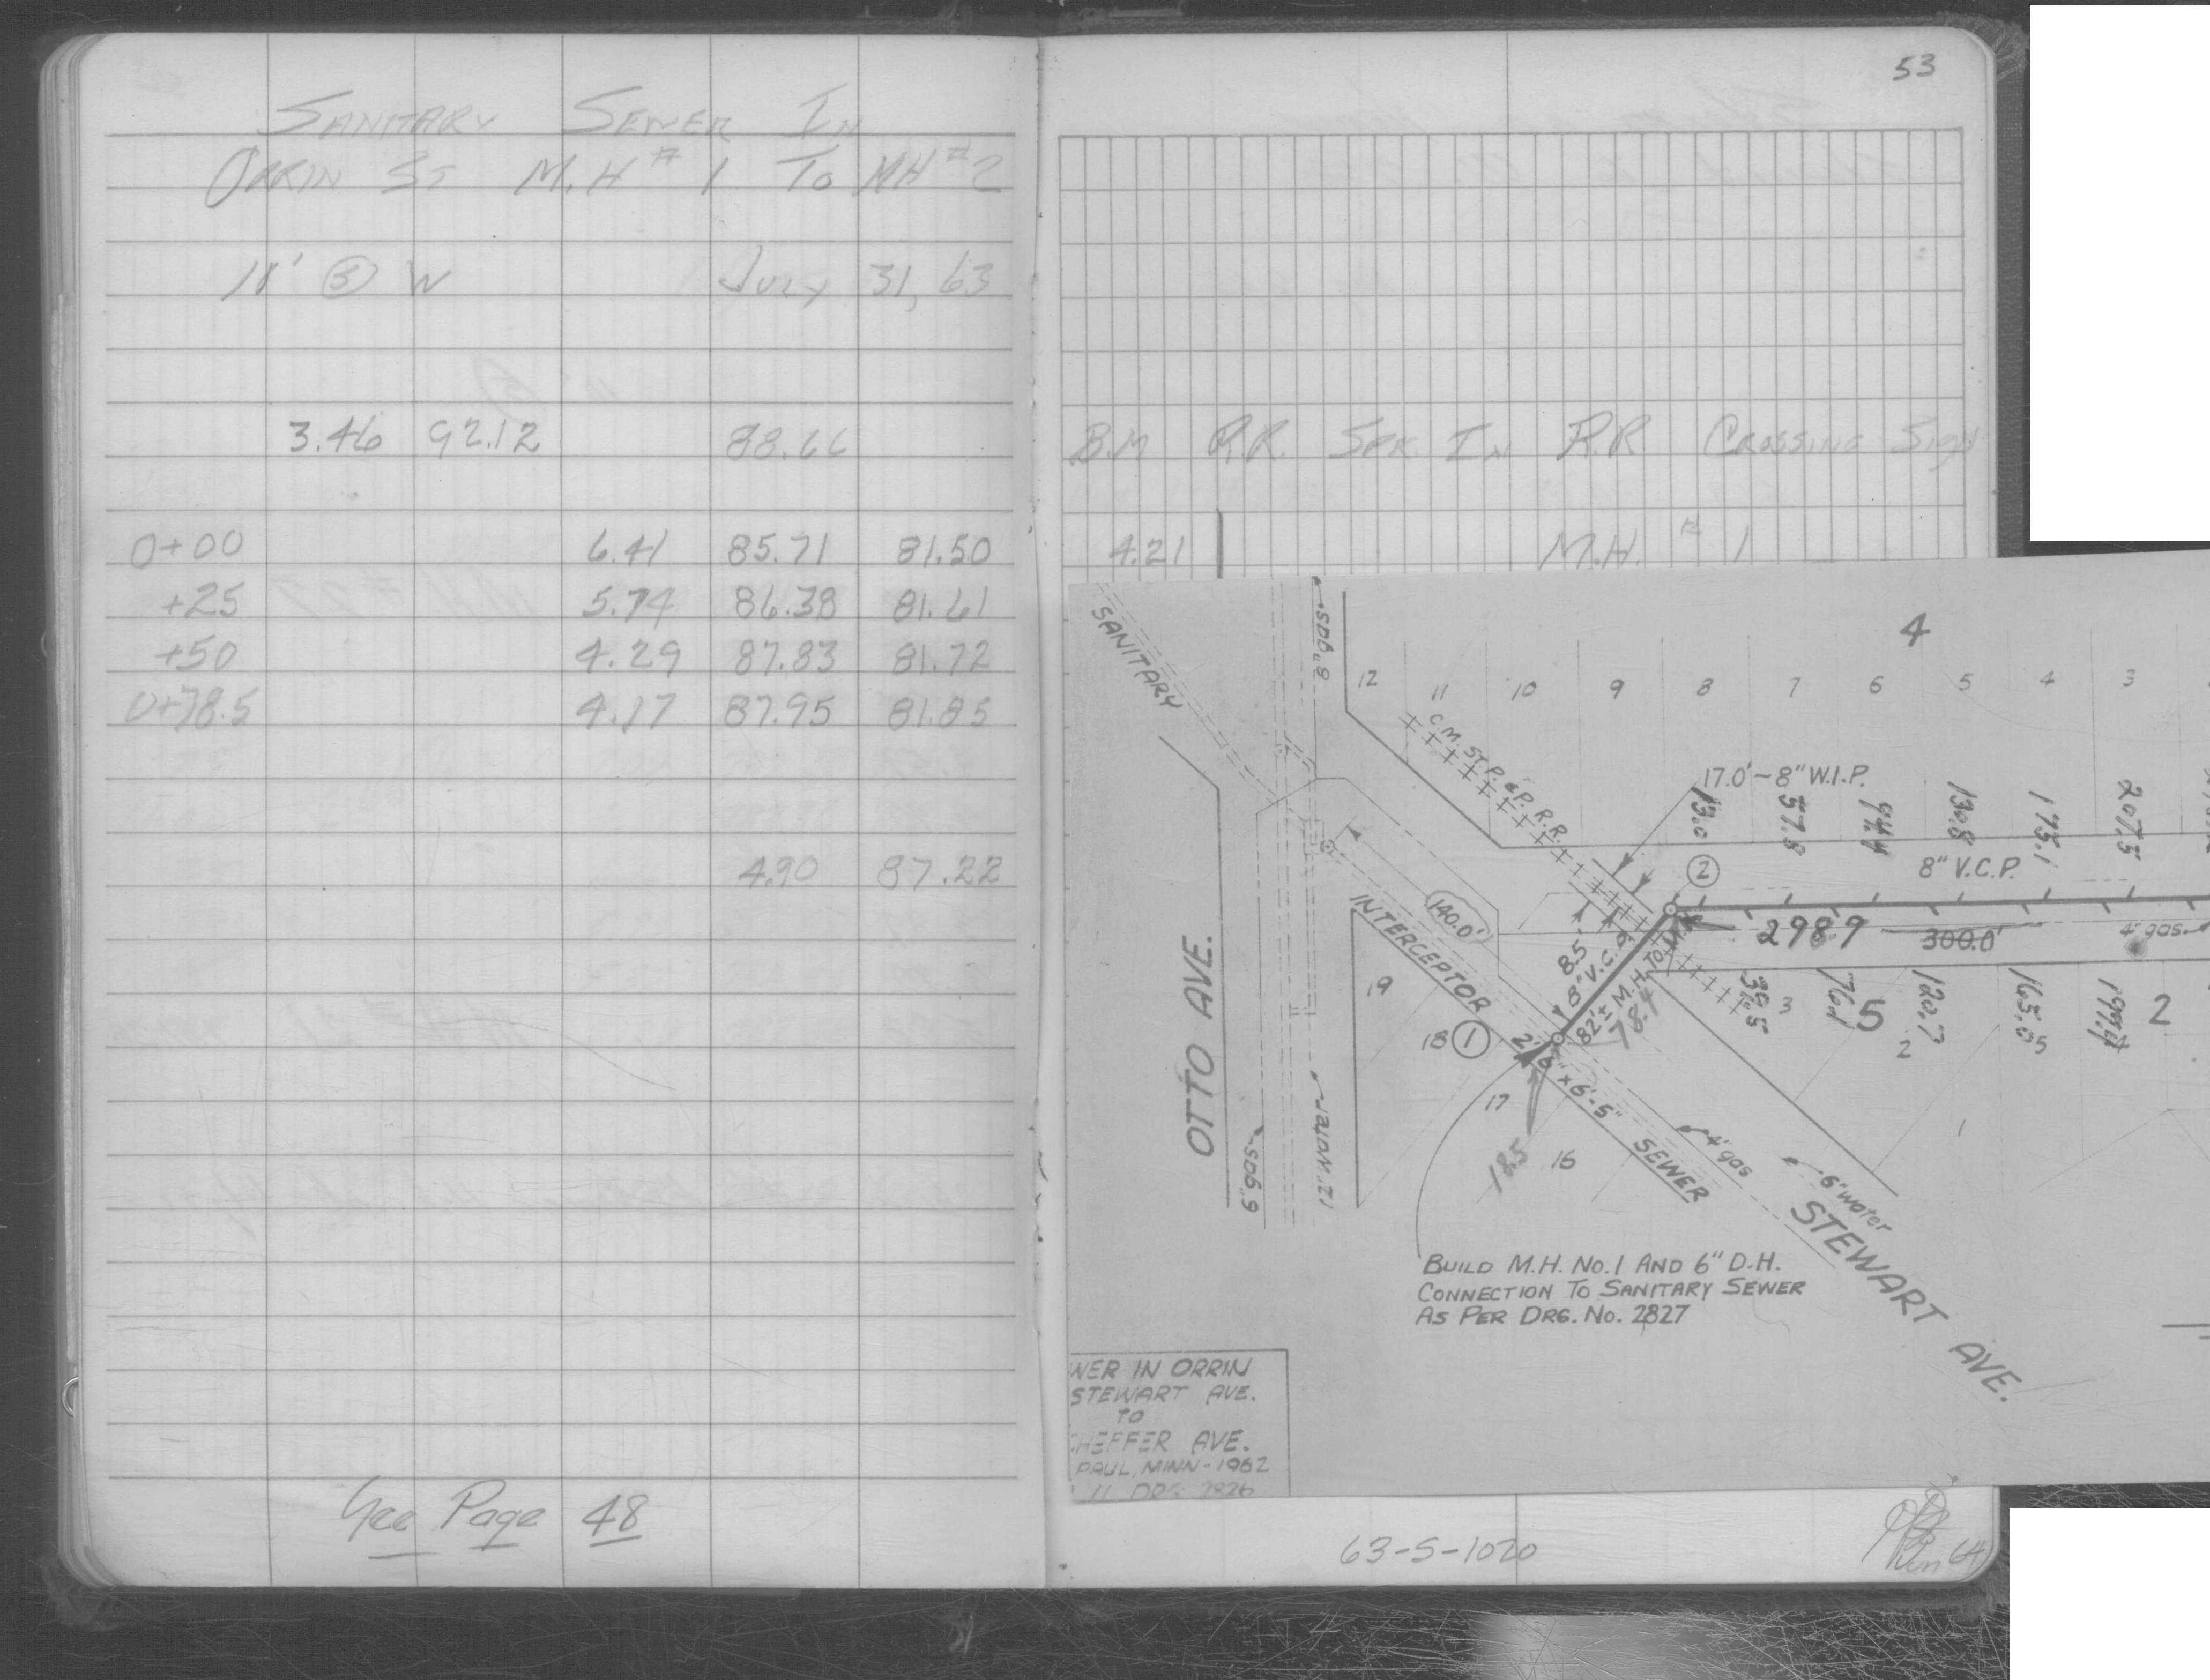 SANITARY SEWER IN
ORRIN ST M.H # 1 TO MH # 2
11' ③ W July 31, 63
3.46 92.12 88.66
0+00 6.41 85.71 81.50
+25 5.74 86.38 81.61
+50 4.29 87.83 81.72
0+78.5 4.17 87.95 81.85
4.90 87.22
See Page 48
53
B.M R.R. SPK. IN R.R. CROSSING SIGN
4.21 M.H. # 1
SANITARY
8" gas
4
12 11 10 9 8 7 6 5 4 3
C.M. ST.P. & P. R.R.
17.0'~8" W.I.P.
13.0 57.8 94.4 130.8 175.1 207.5
②
8" V.C.P.
298.9 300.0'
4" gas
INTERCEPTOR
140.0'
8.5'
8" V.C.P.
82'± M.H. TO M.H.
78.4
39.5 3 76.1 5 120.7 163.0 199.4 2
2 5
19
18 ①
2'6" x 6'-5"
17
16
1
18.5
SEWER
4" gas
6" water
STEWART AVE.
OTTO AVE.
6" gas
12" water
BUILD M.H. No. 1 AND 6" D.H.
CONNECTION TO SANITARY SEWER
AS PER DRG. No. 2827
WER IN ORRIN
STEWART AVE.
TO
CHEFFER AVE.
PAUL, MINN-1962
11 DRG 2826
63-5-1020